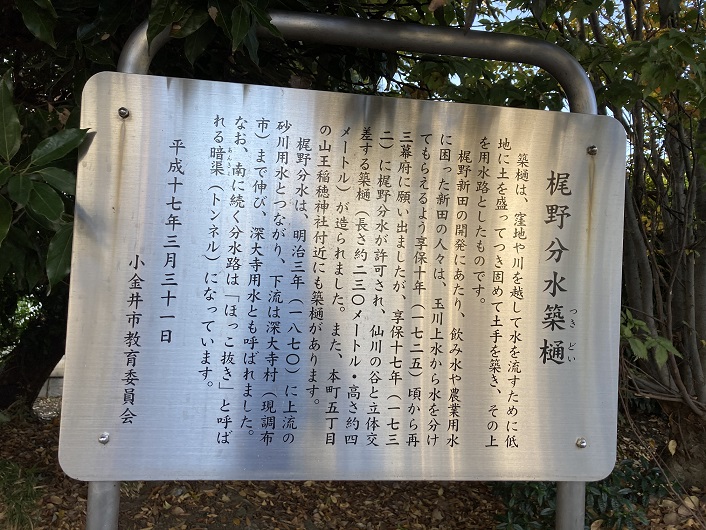 梶野分水築樋
つき どい
築樋は、窪地や川を越して水を流すために低
地に土を盛ってつき固めて土手を築き、その上
を用水路としたものです。
梶野新田の開発にあたり、飲み水や農業用水
に困った新田の人々は、玉川上水から水を分け
てもらえるよう享保十年（一七二五）頃から再
三幕府に願い出ましたが、享保十七年（一七三
二）に梶野分水が許可され、仙川の谷と立体交
差する築樋（長さ約二三〇メートル・高さ約四
メートル）が造られました。また、本町五丁目
の山王稲穂神社付近にも築樋があります。
梶野分水は、明治三年（一八七〇）に上流の
砂川用水とつながり、下流は深大寺村（現調布
市）まで伸び、深大寺用水とも呼ばれました。
なお、南に続く分水路は「ほっこ抜き」と呼ば
れる暗渠（トンネル）になっています。
あんきょ
平成十七年三月三十一日
小金井市教育委員会